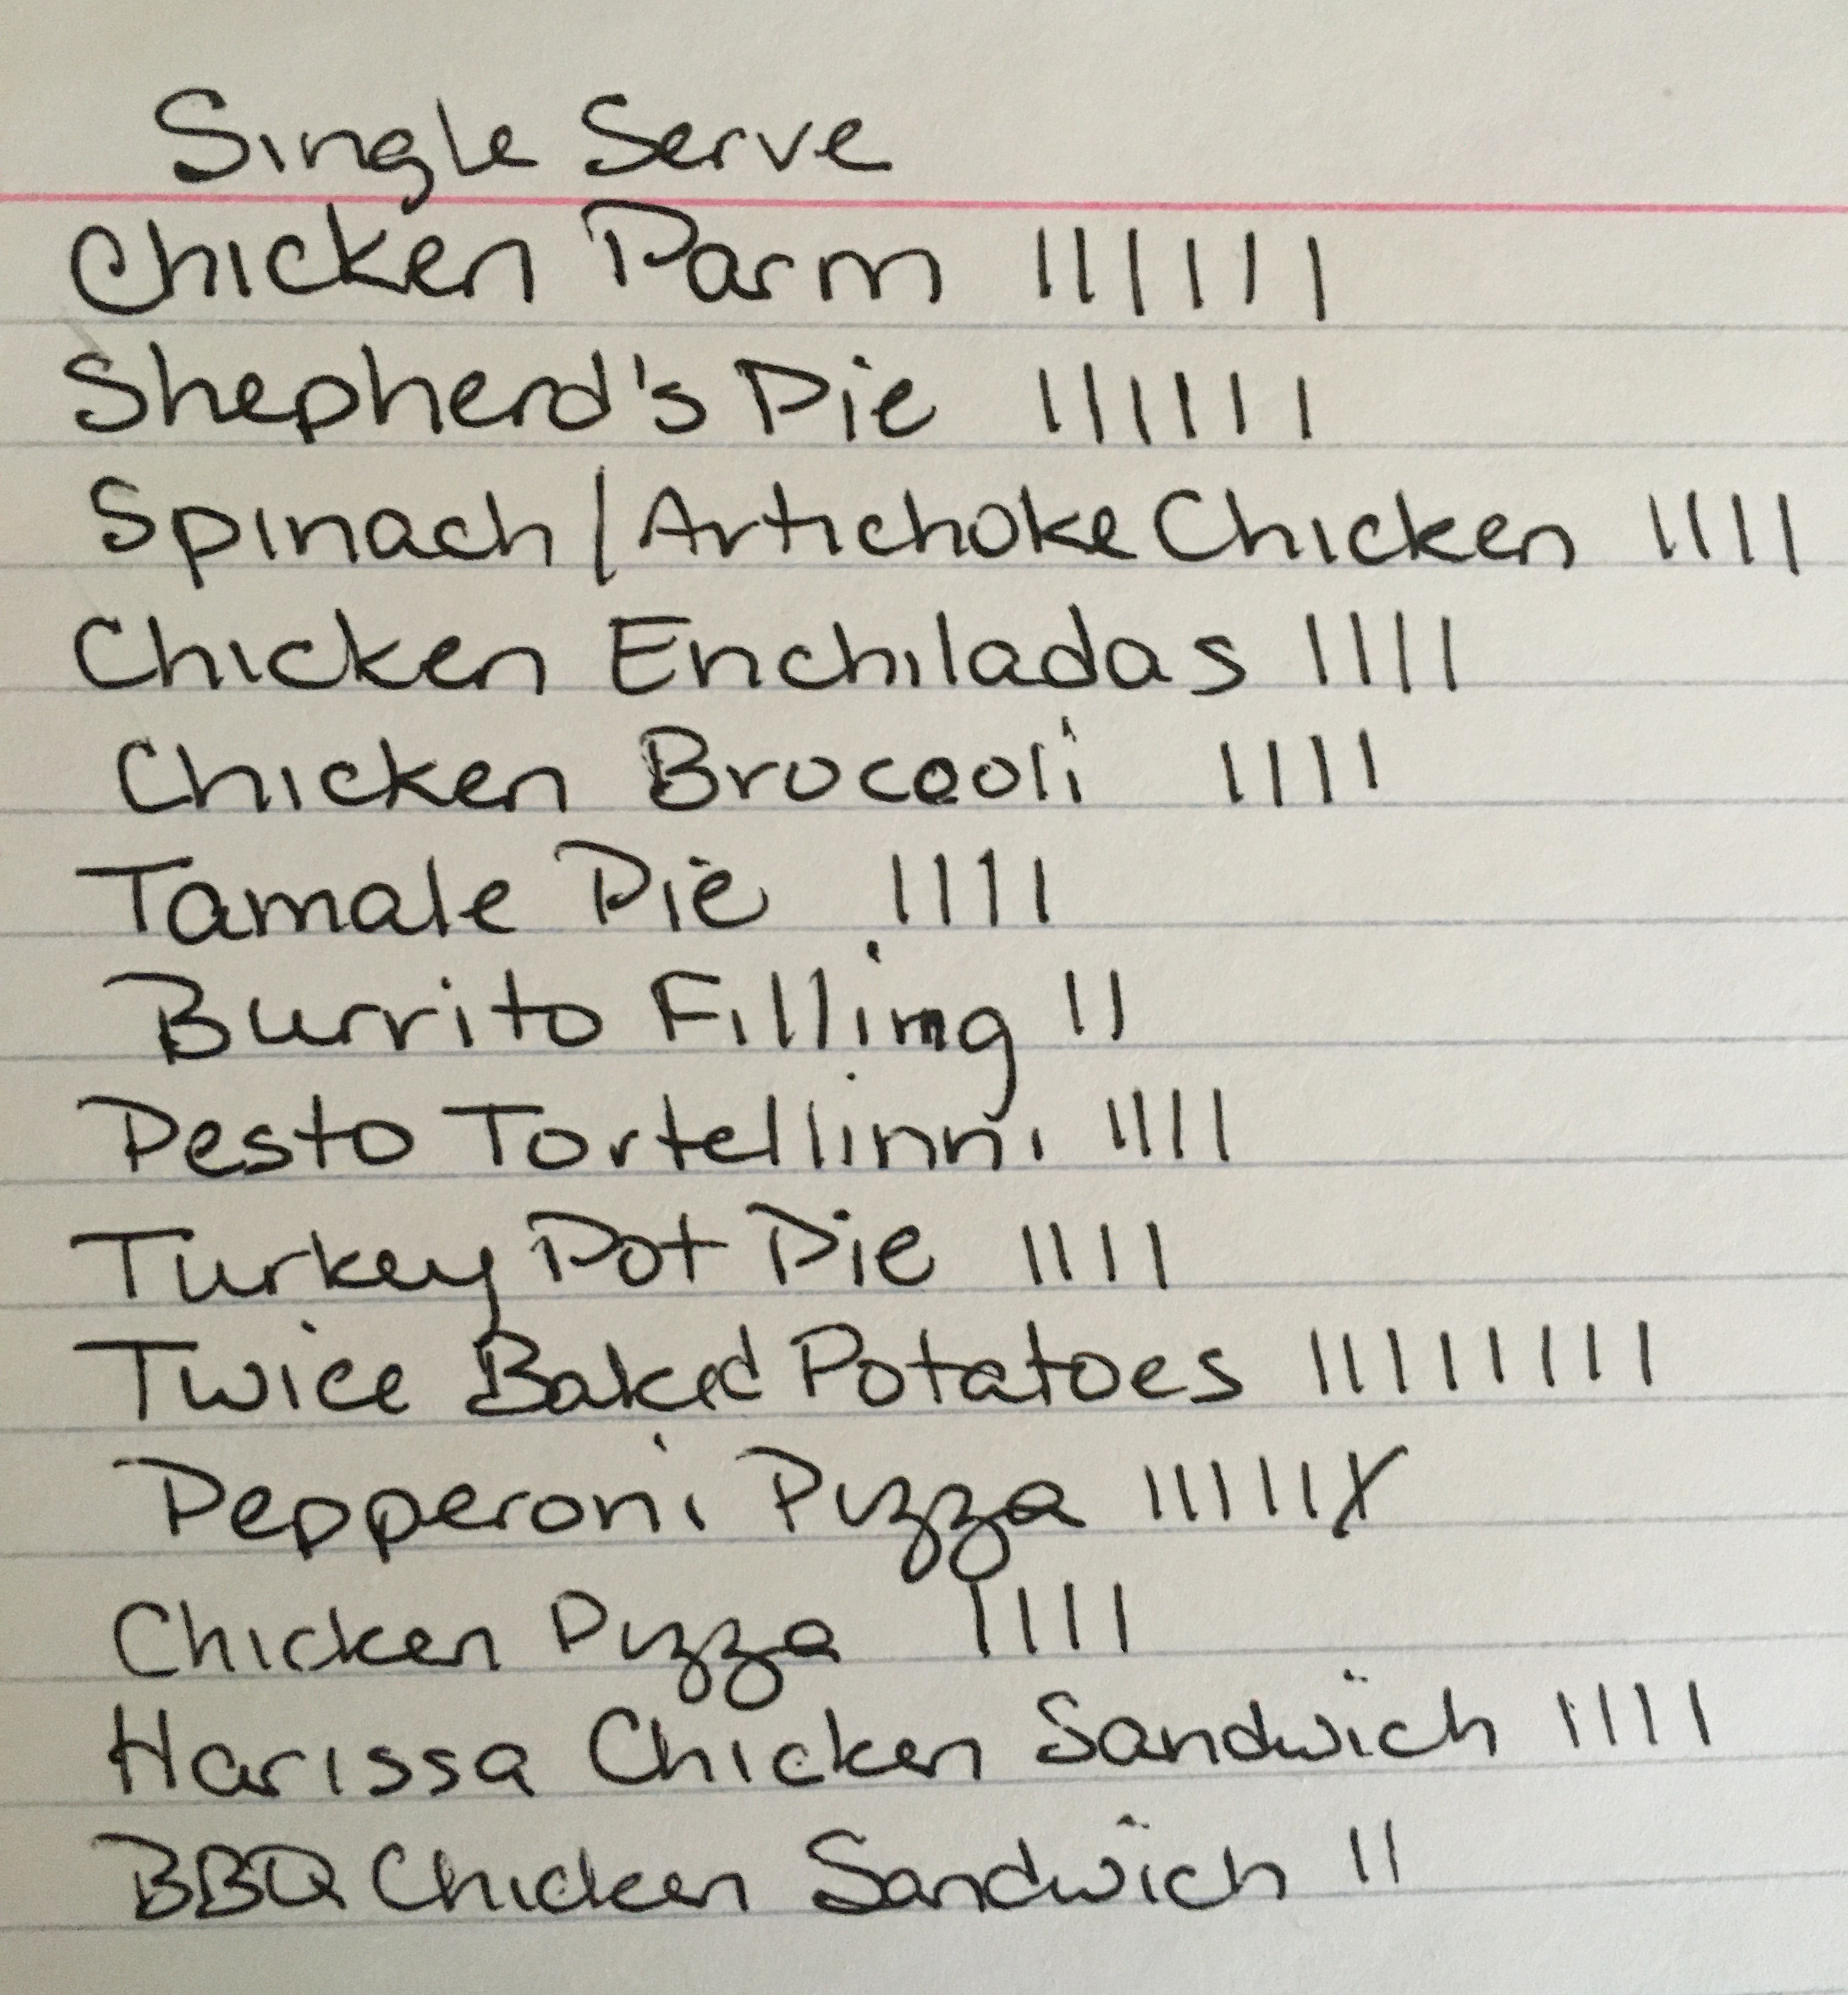 Single Serve
Chicken Parm ||||||
Shepherd's Pie ||||||
Spinach/Artichoke Chicken ||||
Chicken Enchiladas ||||
Chicken Broccoli ||||
Tamale Pie ||||
Burrito Filling ||
Pesto Tortellinni ||||
Turkey Pot Pie ||||
Twice Baked Potatoes ||||||||
Pepperoni Pizza ||||||X
Chicken Pizza ||||
Harissa Chicken Sandwich ||||
BBQ Chicken Sandwich ||